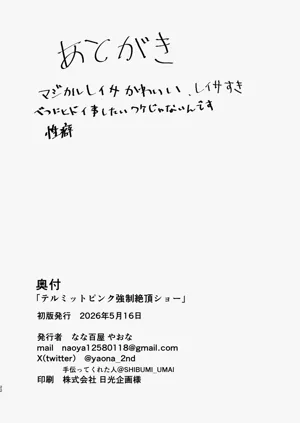 あとがき
マジカルレイサかわいい、レイサすき
べつにヒドイ事したいワケじゃないんです
性癖
奥付
「テルミットピンク強制絶頂ショー」
初版発行　2026年5月16日
発行者　なな百屋 やおな
mail　naoya12580118@gmail.com
X(twitter)　@yaona_2nd
手伝ってくれた人@SHIBUMI_UMAI
印刷　株式会社 日光企画様